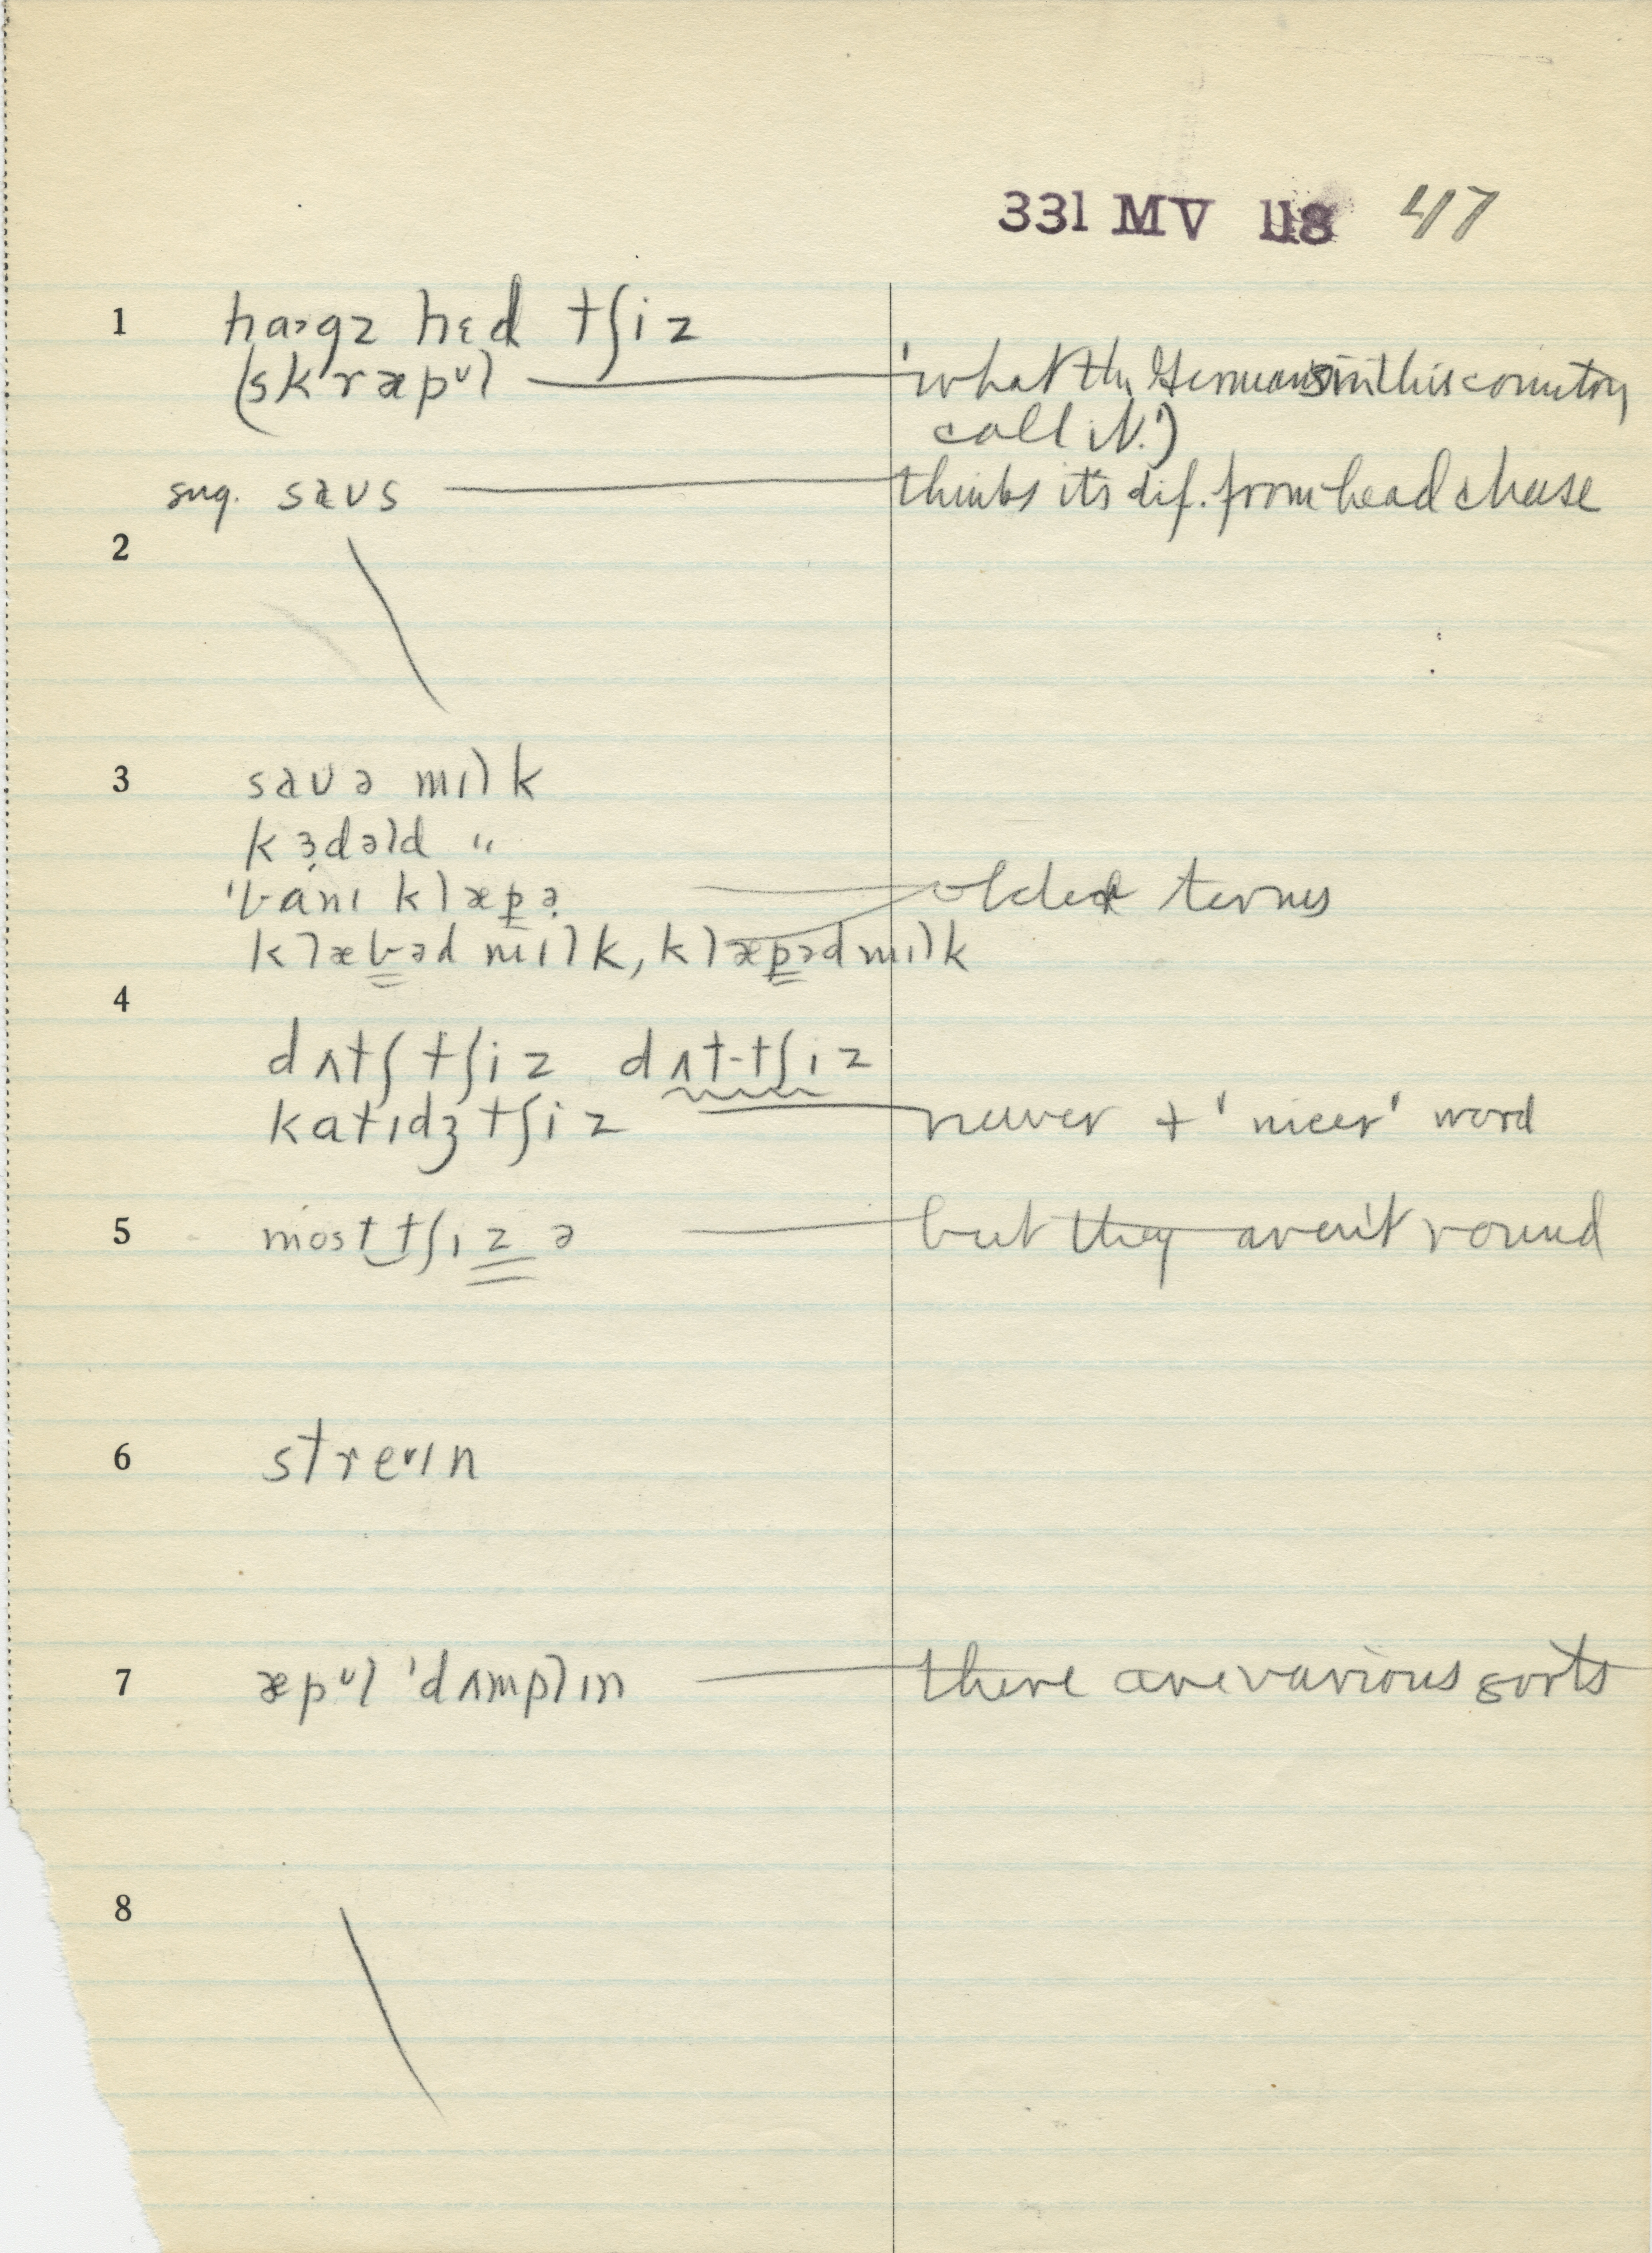 331 MV 118 47
1 haɜgz hɛd tʃiz
(skræpᵘl 'what the Germans in this country
call it.')
sug. saʊs thinks it's dif. from head cheese
2
3 saʊə mɪlk
kɜ̣dəld "
'banɪ klæpə̣ older terms
klæbəd mɪlk, klæpəd mɪlk
4
dʌtʃ tʃiz dʌt-tʃiz
katɪdʒ tʃiz newer + 'nicer' word
5 most tʃizə but they aren't round
6 streᵛɪn
7 æpᵘl 'dʌmplɪn there are various sorts
8